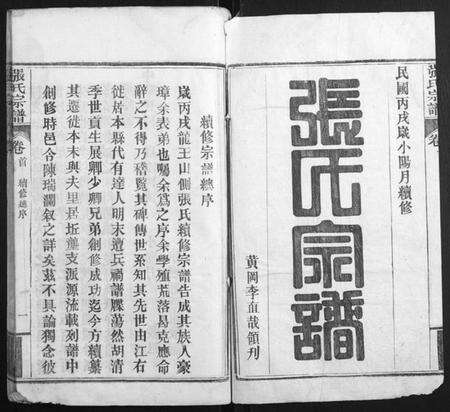 張氏宗譜 卷
民國丙戌歲小陽月續修
張氏宗譜
黃岡李直哉領刋
續修宗譜總序
歲丙戌龍王山側張氏續修宗譜告成其族人豪
璋余表弟也囑余爲之序余學殖荒落曷克應命
辭之不得乃稽覽其碑傳世系知其先世由江右
徙居本縣代有達人明末遭兵禍譜牒蕩然胡清
季世貞生展卿少卿兄弟創修成功迄今方續葉
其遷徙本末與夫里居坵壟支派源流載列譜中
創修時邑令陳瑞瀾叙之詳矣茲不具論獨念彼
張氏宗譜 卷首 續修總序 一